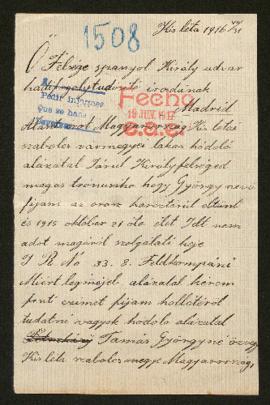 Kis léta 1916 VII/31
1508
Ő Felsége spanyol Király udvar
hadifogolytudósító irodának
Pedir informes
que se hará
Fecho
19 JUN. 1917
Madrid
Magyarország Kisléta
szabolcs vármegyei lakos hódoló
alázatal járul Királyfelséged
magas trónusához hogy György nevű
fijam az orosz harcztéren eltünt
és 1915 oktobar 21 óta élet jelt nem
adot magáról szolgálati helye
I R No 33. 8. Feldkompani
Miért legmélyeb alázatal kérem
fenti czimet fijam hollétéről
tudatni vagyok hódoló alázatal
Tamás Györgyné özvegy
Kis léta szabolcsmegye Magyarország